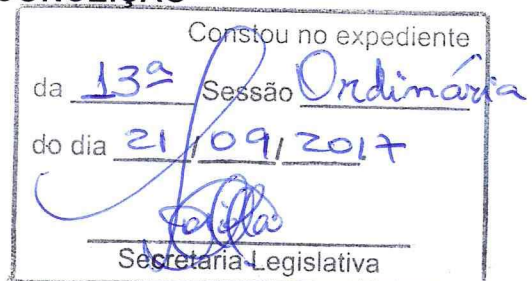 Constou no expediente
da 13ª Sessão Ordinária
do dia 21/09/2017
Secretaria Legislativa